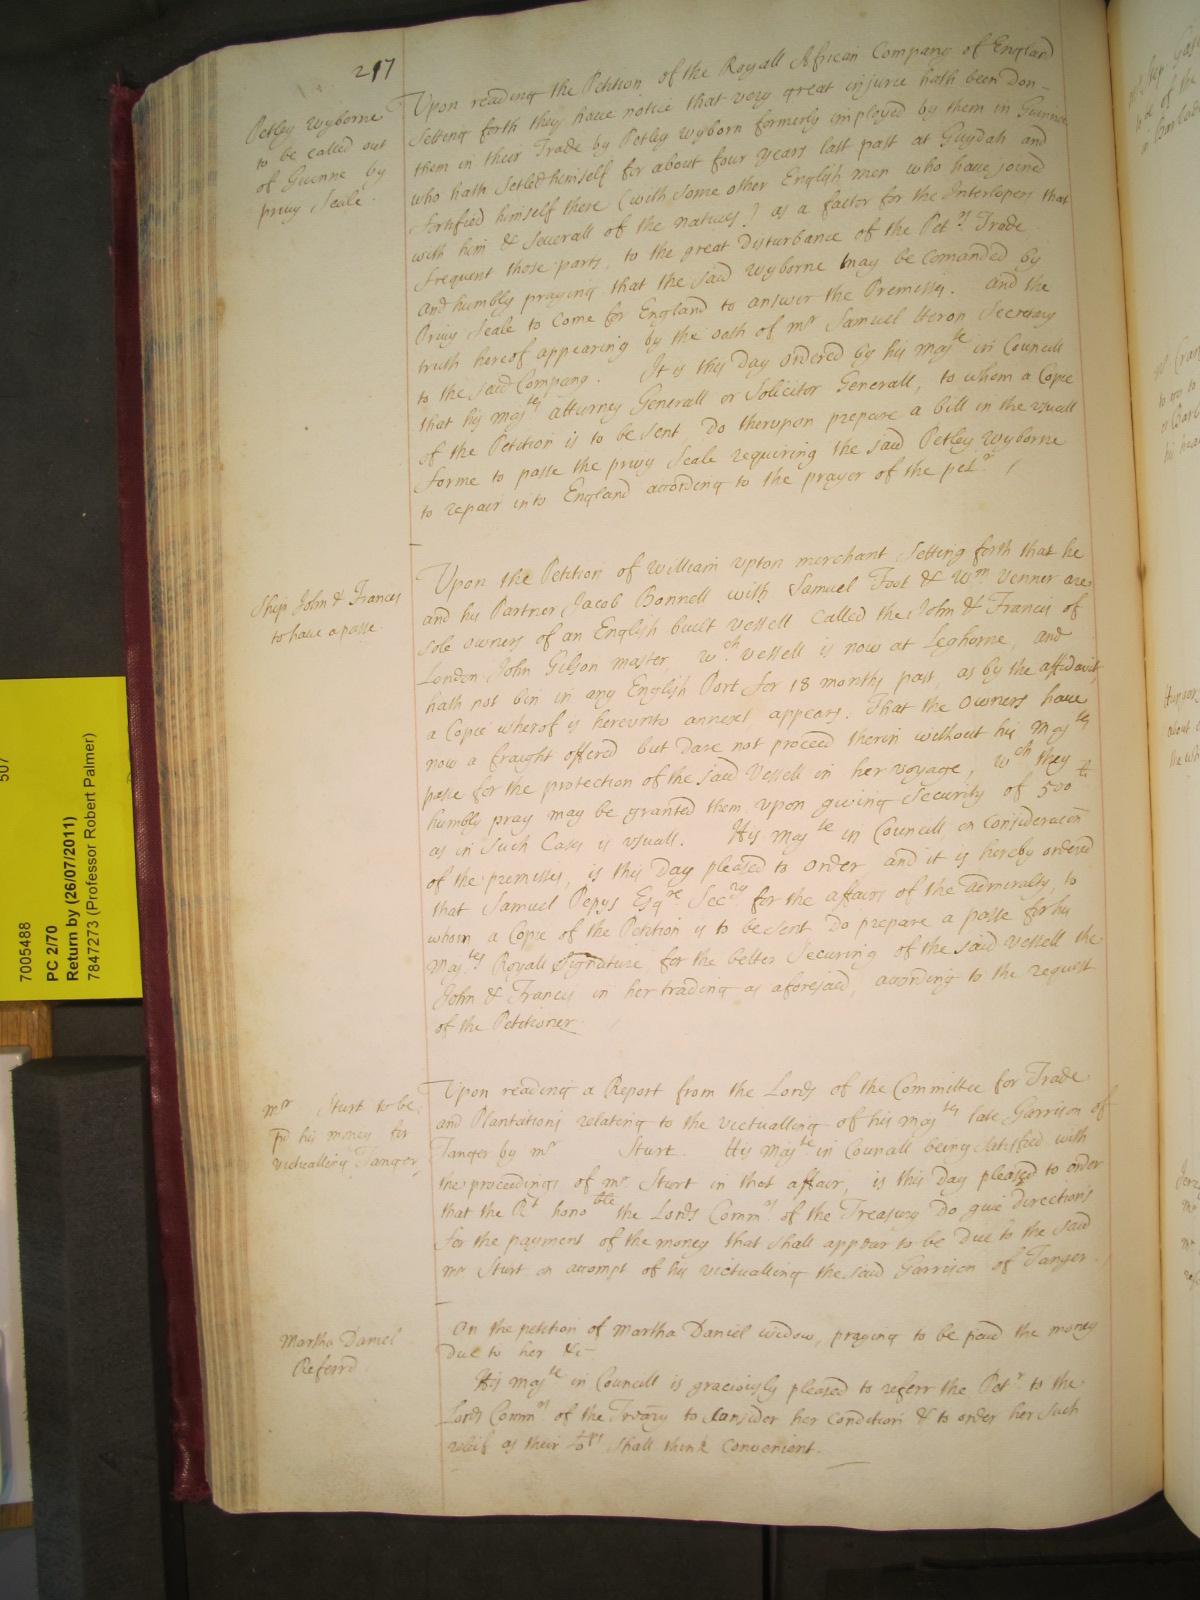 217
Petley Wyborne
to be called out
of Guenne by
privy Seale.
Upon reading the Petition of the Royall African Company of England
Setting forth they have notice that very great injurie hath been don
them in their Trade by Petley Wyborn formerly imployed by them in Guinne
who hath Setled himself for about four years last past at Guydah and
fortified himself there (with some other English men who have joined
with him & severall of the natives) as a factor for the Interlopers that
frequent those parts, to the great Disturbance of the Petrs Trade
And humbly praying that the said Wyborne may be Comanded by
Privy Seale to Come for England to answer the Premisses. And the
truth hereof appearing by the oath of Mr Samuel Heron Secretary
to the said Company. It is this Day ordered by his Majte in Councill
that his Majtes Attorney Generall or Solicitor Generall, to whom a Copie
of the Petition is to be sent, Do therupon prepare a bill in the usuall
forme to passe the privy Seale requiring the said Petley Wyborne
to repair into England according to the prayer of the petr.
Ship John & Frances
to have a passe.
Upon the Petition of William Upton merchant Setting forth that he
and his Partner Jacob Bonnell with Samuel Foot & Wm Venner are
sole owners of an English built Vessell Called the John & Francis of
London John Gilson master, wch Vessell is now at Leghorne, and
hath not bin in any English Port for 18 months past, as by the affidavit,
a Copie wherof is hereunto annexet appears. That the Owners have
now a fraight offered but Dare not proceed therin without his Majtes
passe for the protection of the said Vessell in her voyage, wch they
humbly pray may be granted them, upon giving Security of 500li
as in Such Cases is usuall. His Majte in Councill on Consideracon
of the premisses, is this Day pleased to order and it is hereby ordered
that Samuel Pepys Esqre Secry for the affairs of the Admiralty, to
whom a Copie of the Petition is to be sent Do prepare a passe for his
Majtes Royall Signature, for the better Securing of the said Vessell the
John & Francis in her trading as aforesaid, according to the request
of the Petitioner.
Mr Sturt to be
pd his money for
victualling Tanger
Upon reading a Report from the Lords of the Committee for Trade
and Plantations relating to the victualling of his Majtes late Garrison of
Tanger by Mr Sturt. His Majte in Councill being Satisfied with
the proceedings of Mr Sturt in that affair, is this Day pleased to order
that the Rt honoble the Lords Commrs of the Treasury Do give Directions
for the payment of the money that shall appear to be Due to the said
Mr Sturt on accompt of his victualling the said Garrison of Tanger.
Martha Daniel
Referrd
On the petition of Martha Daniel widow, praying to be paid the money
Due to her &c
His Majte in Councill is graciously pleased to referr the Petr to the
Lords Commrs of the Treary to Consider her Condition & to order her such
relief as their Lops shall think Convenient.
507
7005488
PC 2/70
Return by (26/07/2011)
7847273 (Professor Robert Palmer)